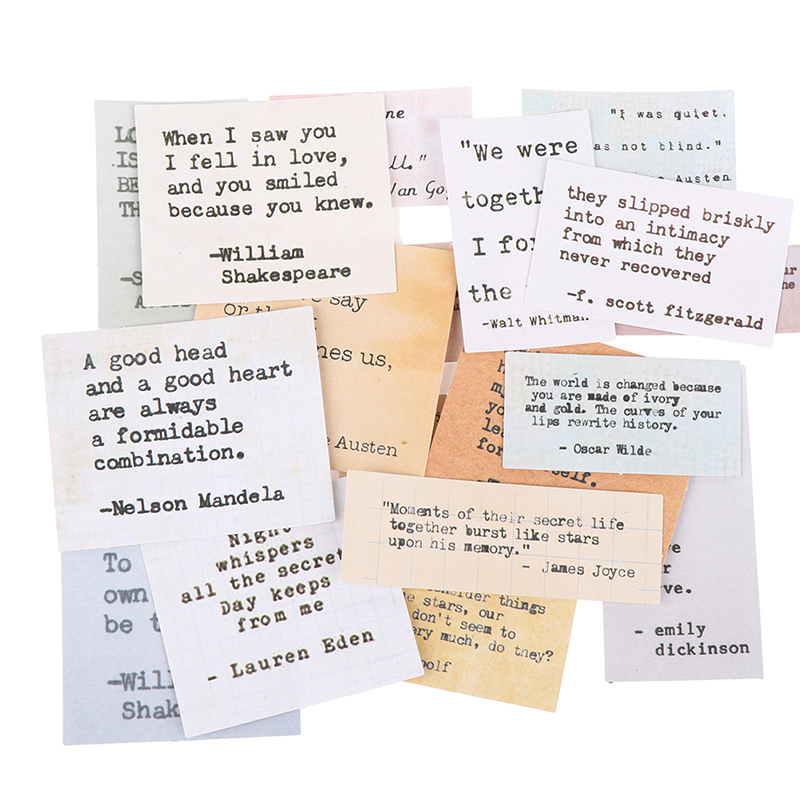 When I saw you
I fell in love,
and you smiled
because you knew.
—William
Shakespeare
"I was quiet,
as not blind."
Austen
"We were
togeth
I for
the
-Walt Whitman
they slipped briskly
into an intimacy
from which they
never recovered
—f. scott fitzgerald
IS
BE
TH
say
nes us,
Austen
A good head
and a good heart
are always
a formidable
combination.
—Nelson Mandela
The world is changed because
you are made of ivory
and gold. The curves of your
lips rewrite history.
- Oscar Wilde
"Moments of their secret life
together burst like stars
upon his memory."
- James Joyce
To
own
be t
—Will
Shak
Night
whispers
all the secret
Day keeps
from me
- Lauren Eden
things
e stars, our
don't seem to
ery much, do they?
oolf
ve.
- emily
dickinson